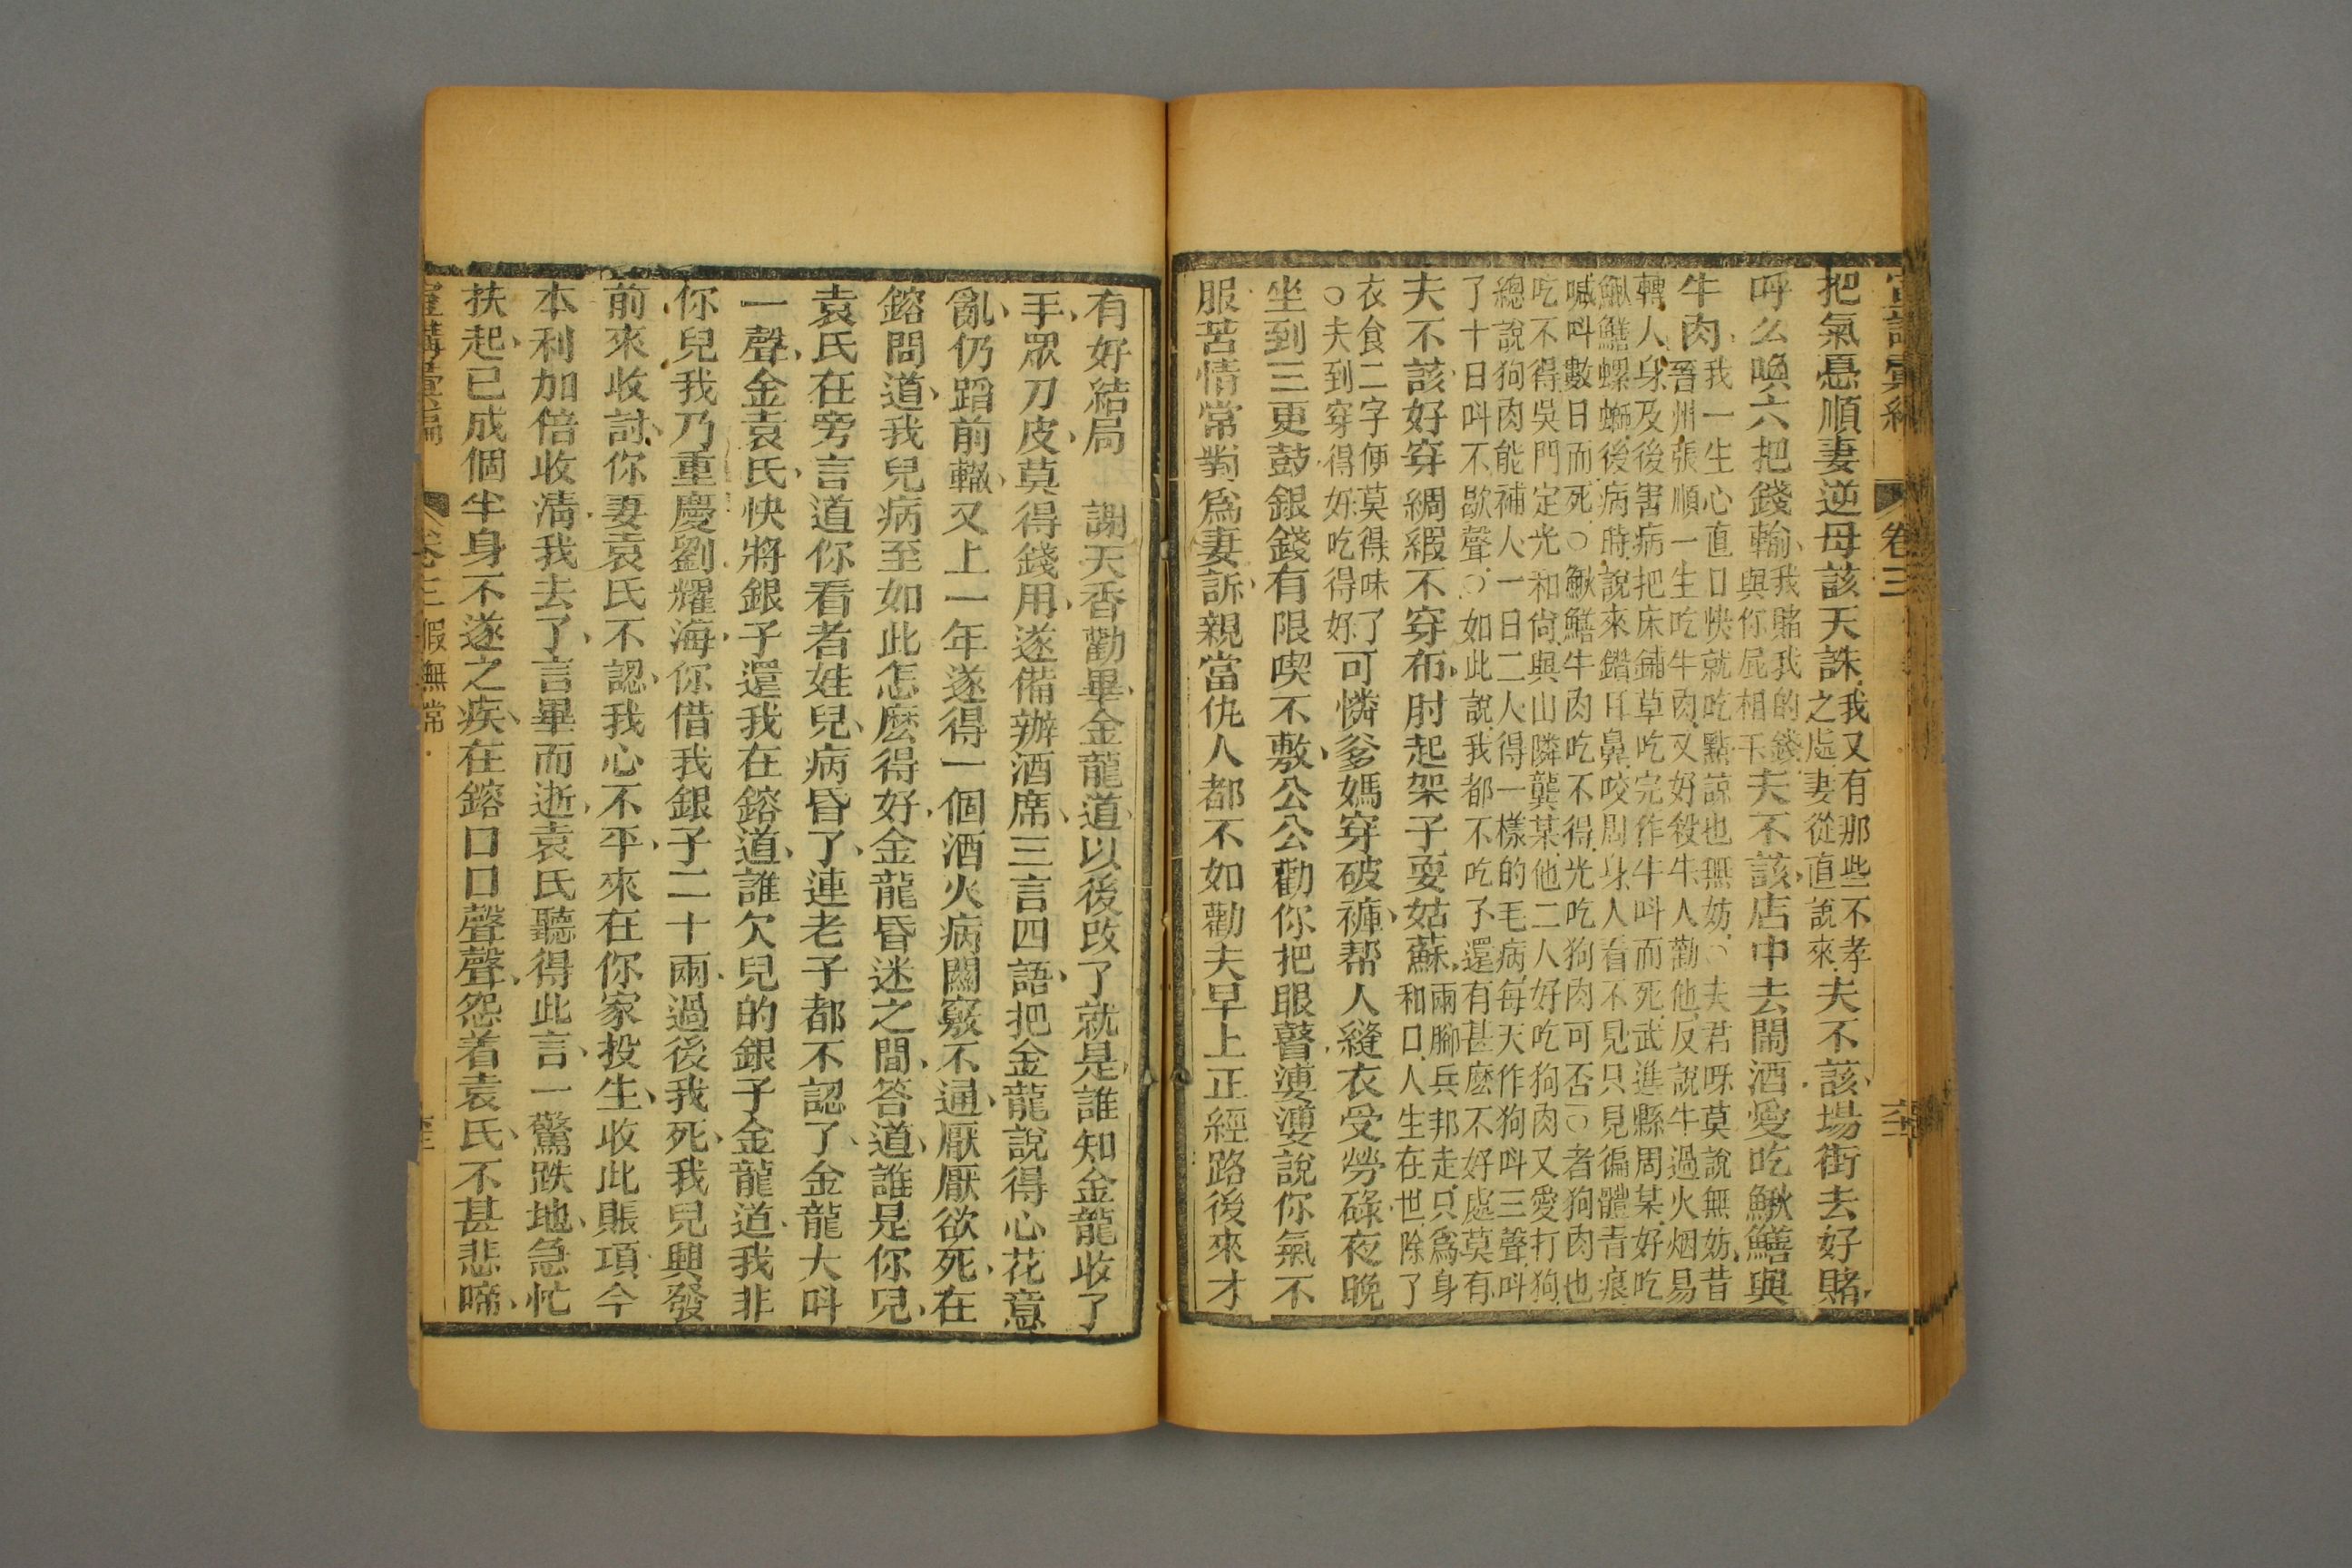 宣講彙編 卷三
把氣惪順妻逆母該天誅我又有那些不孝
之處妻從直說來夫不該場街去好賭
呼么喚六把錢輸我賭我的錢
與你屁相干夫不該店中去鬧酒愛吃鰍鱔與
牛肉我一生心直口快就吃點諒也無妨○夫君呀莫說無妨昔
晉州張順一生吃牛肉又好殺牛人勸他反說牛過火烟易
轉人身及後害病把床鋪草吃完作牛呌而死武進縣周某好吃
鰍鱔螺螄後病時說來鑽耳鼻咬周身人看不見只見徧體青痕
喊呌數日而死○鰍鱔牛肉吃不得光吃狗肉可否○者狗肉也
吃不得吳門定光和尙與山隣龔某他二人好吃狗肉又愛打狗
總說狗肉能補人一日二人得一樣的毛病每天作狗呌三聲呌
了十日呌不歇聲○如此說我都不吃了還有甚麽不好處莫有
夫不該好穿綢緞不穿布肘起架子耍姑蘇兩腳兵邦走只爲身
和口人生在世除了
衣食二字便莫得味了
○夫到穿得好吃得好可憐爹媽穿破褲帮人縫衣受勞碌夜晚
坐到三更鼓銀錢有限喫不敷公公勸你把眼瞽婆婆說你氣不
服苦情常對爲妻訴親當仇人都不如勸夫早上正經路後來才
有好結局 謝天香勸畢金龍道以後改了就是誰知金龍收了
手眾刀皮莫得錢用遂備辦酒席三言四語把金龍說得心花意
亂仍蹈前轍又上一年遂得一個酒火病關竅不通厭厭欲死在
鎔問道我兒病至如此怎麽得好金龍昏迷之間答道誰是你兒
袁氏在旁言道你看者娃兒病昏了連老子都不認了金龍大呌
一聲金袁氏快將銀子還我在鎔道誰欠兒的銀子金龍道我非
你兒我乃重慶劉耀海你借我銀子二十兩過後我死我兒興發
前來收討你妻袁氏不認我心不平來在你家投生收此賬項今
本利加倍收淸我去了言畢而逝袁氏聽得此言一驚跌地急忙
扶起已成個半身不遂之疾在鎔口口聲聲怨着袁氏不甚悲啼
宣講彙編 卷三 假無常